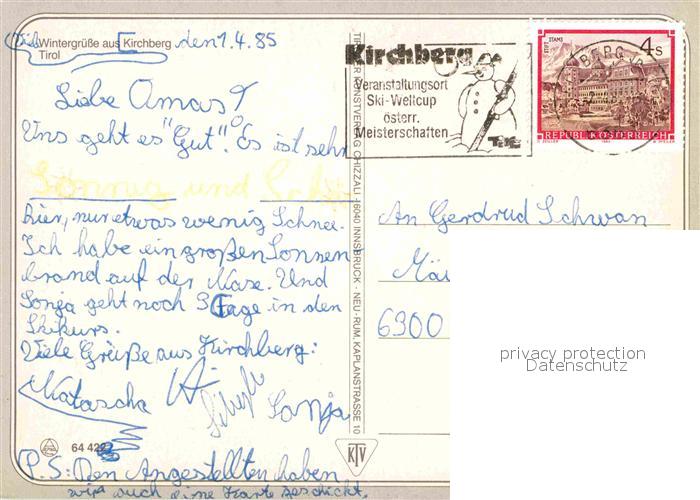 Wintergrüße aus Kirchberg den 1.4.85
Tirol
Liebe Omas!
Uns geht es "Gut". Es ist sehr
Sonnig und
hier, nur etwas wenig Schnee.
Ich habe ein großen Sonnen
brand auf der Nase. Und
Sonja geht noch 3 Tage in den
Skikurs.
Viele Grüße aus Kirchberg:
Natascha
Sonja
64 422
P.S: Den Angestellten haben
wir auch eine Karte geschickt.
TIROLER KUNSTVERLAG CHIZZALI · 6040 INNSBRUCK - NEU-RUM, KAPLANSTRASSE 10
KTV
Kirchberg
Veranstaltungsort
Ski-Weltcup
österr.
Meisterschaften
Tirol
STIFT STAMS
4 S
REPUBLIK ÖSTERREICH
An Gerdrud Schwan
6300
privacy protection
Datenschutz